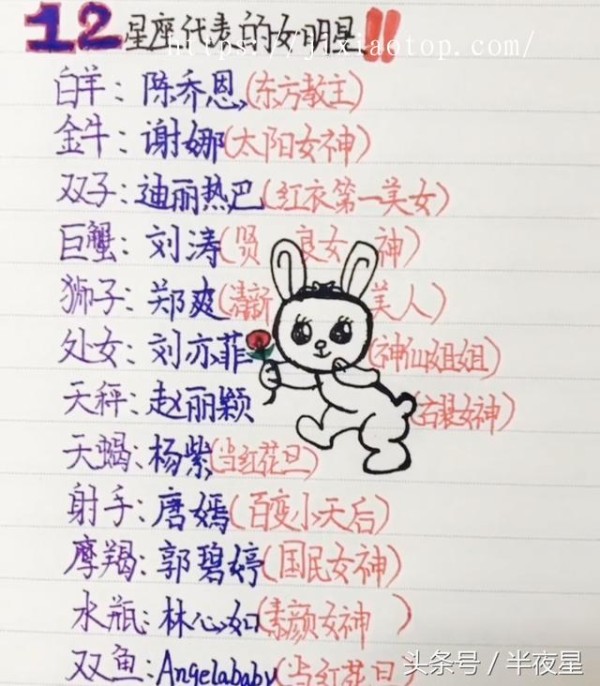 12星座代表的女明星!!
https://j.jxiaotop.com/
白羊：陈乔恩(东方教主)
金牛：谢娜(太阳女神)
双子：迪丽热巴(红衣第一美女)
巨蟹：刘涛(贤良女神)
狮子：郑爽(清新美人)
处女：刘亦菲(神仙姐姐)
天秤：赵丽颖(古装女神)
天蝎：杨紫(当红花旦)
射手：唐嫣(百变小天后)
摩羯：郭碧婷(国民女神)
水瓶：林心如(素颜女神)
双鱼：Angelababy(当红花旦)
头条号/半夜星